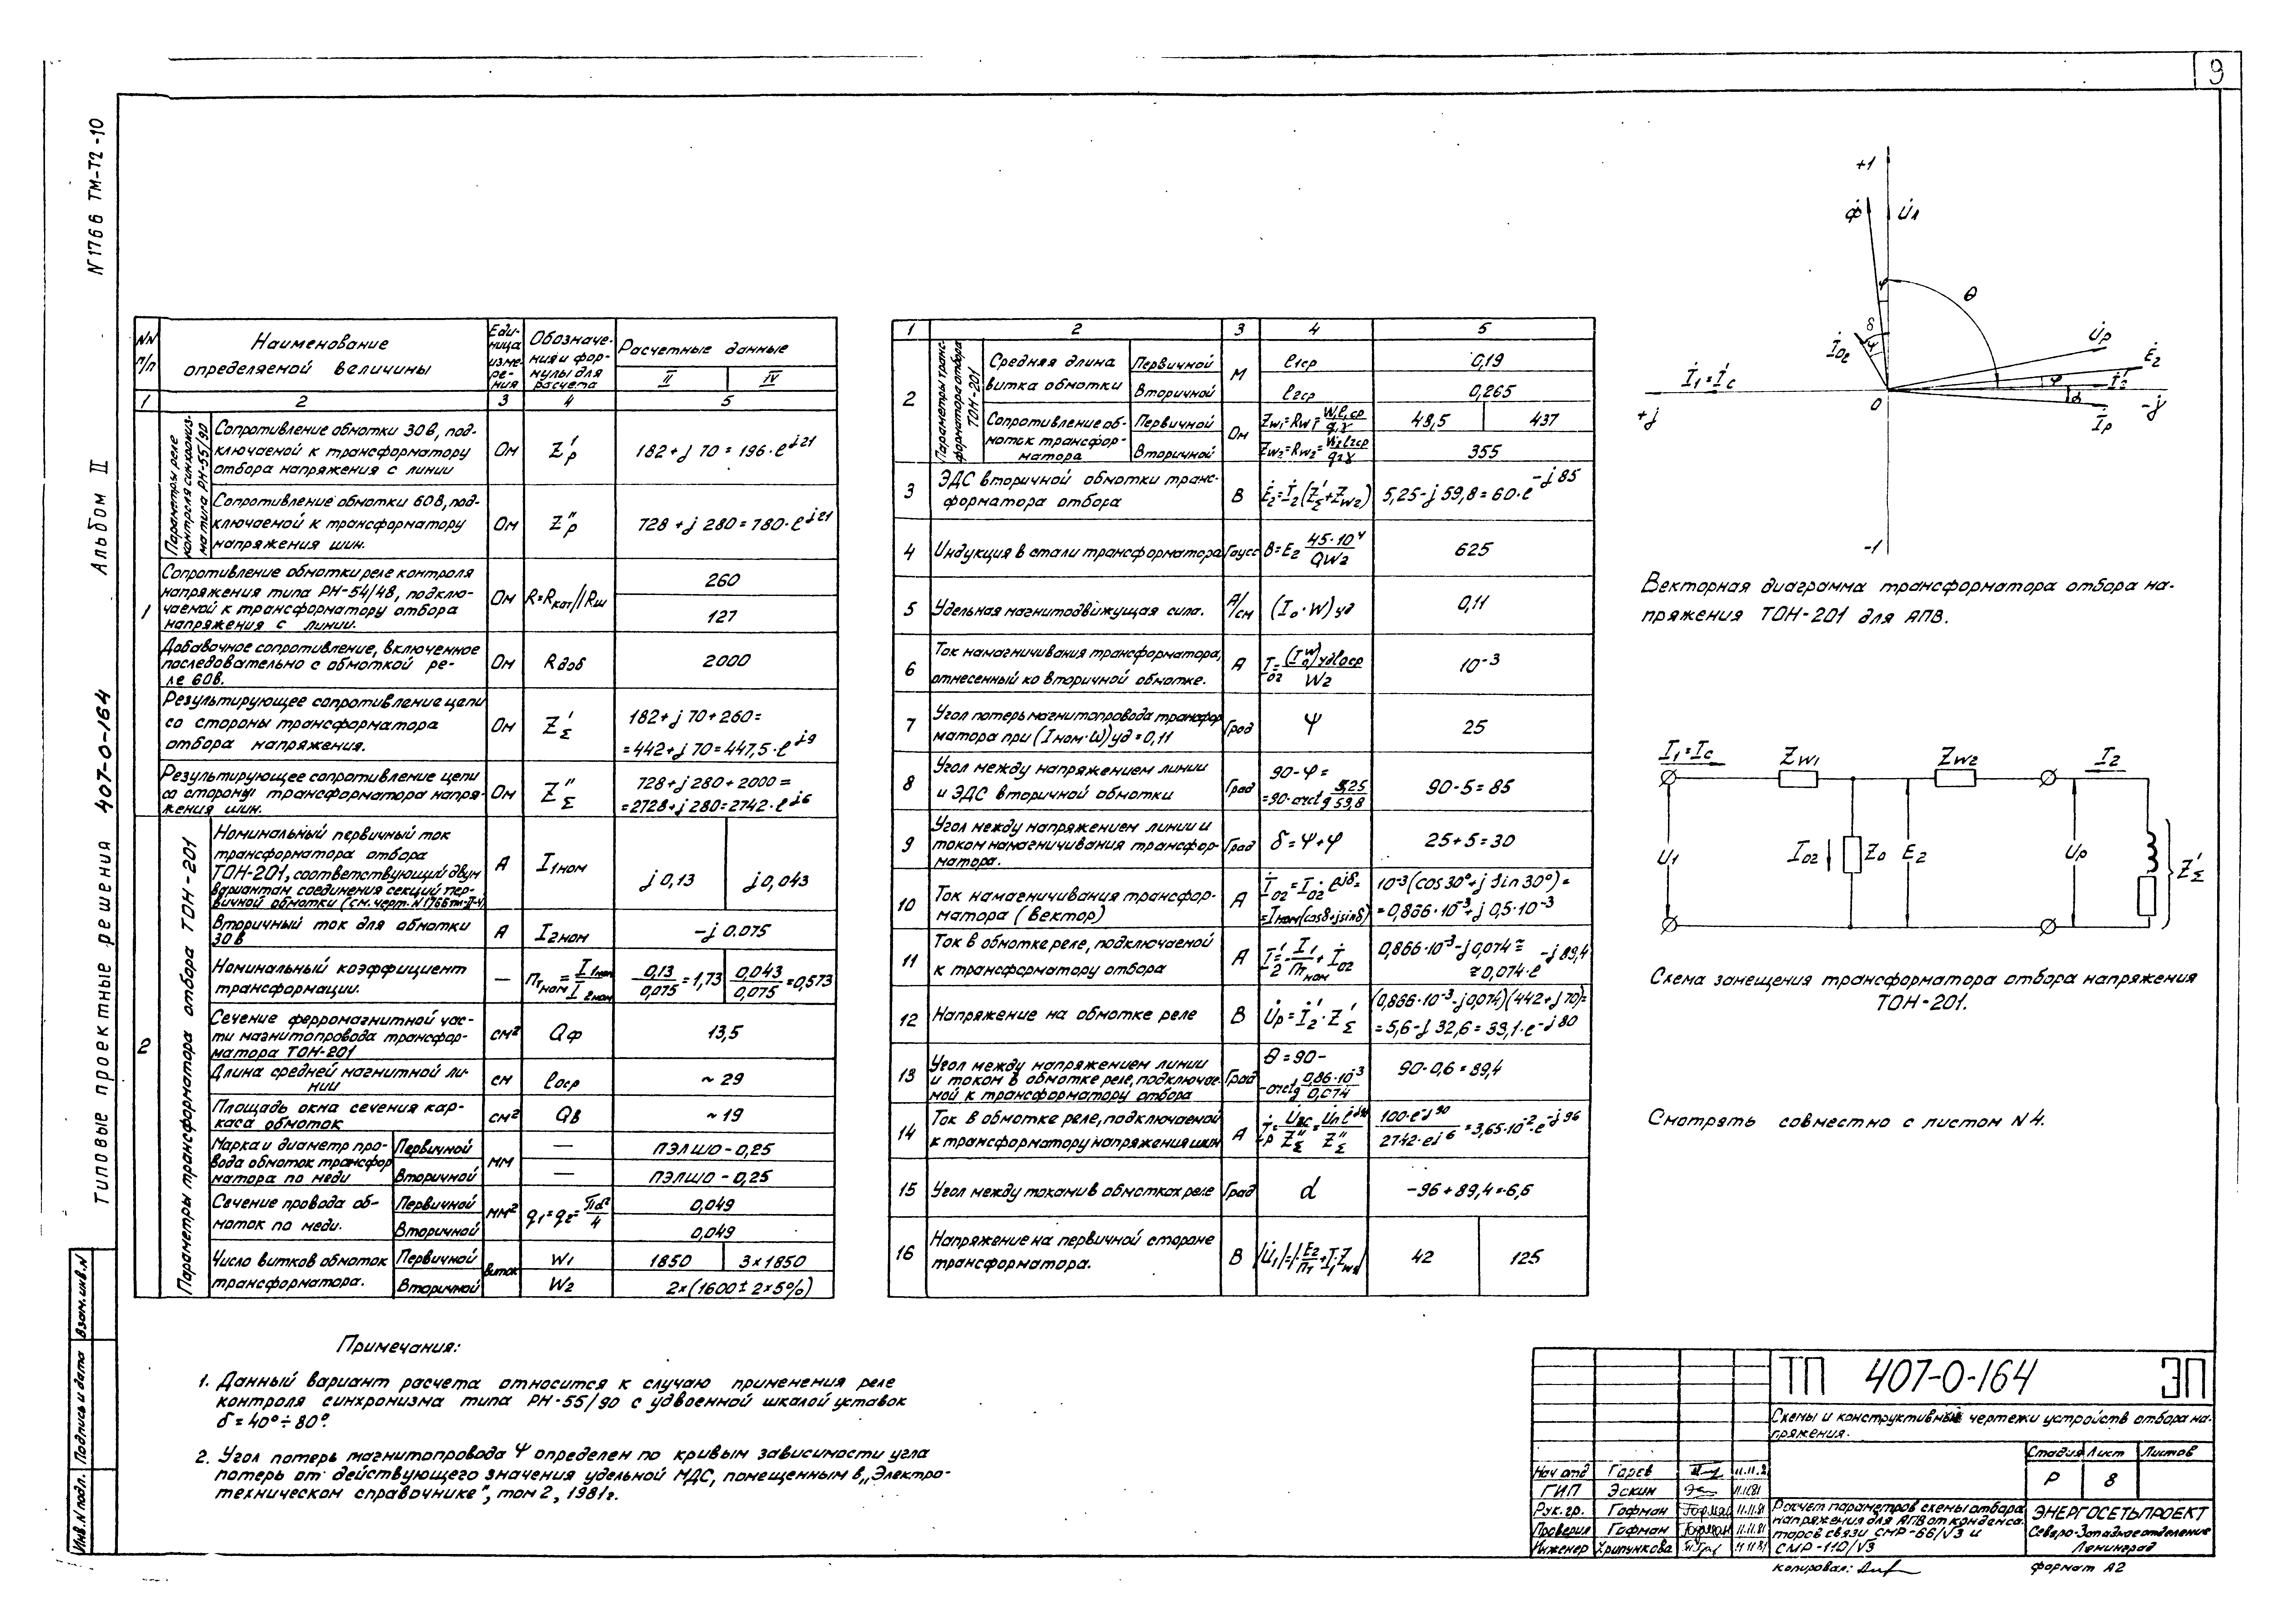 9
N1766 ТМ-Т2-10
Альбом II
Типовые проектные решения 407-0-164
Взам.инв.N
Подпись и дата
Инв.N подл.
NN п/п
Наименование определяемой величины
Единица измерения
Обозначения и формулы для расчета
Расчетные данные
II IV
1 2 3 4 5
1
Параметры реле контроля синхронизма типа РН-55/90
Сопротивление обмотки 30в, подключаемой к трансформатору отбора напряжения с линии
Ом
Z'р
182+j 70 = 196·e^j21
Сопротивление обмотки 60в, подключаемой к трансформатору напряжения шин.
Ом
Z"р
728 + j 280 = 780·e^j21
Сопротивление обмотки реле контроля напряжения типа РН-54/48, подключаемой к трансформатору отбора напряжения с линии.
Ом
R=Rкат//Rш
260
127
Добавочное сопротивление, включенное последовательно с обмоткой реле 60в.
Ом
Rдоб
2000
Результирующее сопротивление цепи со стороны трансформатора отбора напряжения.
Ом
Z'Σ
182+j 70+260=
=442+j 70=447,5·e^j9
Результирующее сопротивление цепи со стороны трансформатора напряжения шин.
Ом
Z"Σ
728+j280+2000=
=2728+j 280=2742·e^j6
2
Параметры трансформатора отбора ТОН-201
Номинальный первичный ток трансформатора отбора ТОН-201, соответствующий двум вариантам соединения секций первичной обмотки (см.черт.N1766тм-II-4)
А
I1ном
j 0,13
j 0,043
Вторичный ток для обмотки 30в
А
I2ном
-j 0.075
Номинальный коэффициент трансформации.
—
Птном = I1ном / I2ном
0,13/0,075 = 1,73
0,043/0,075 = 0,573
Сечение ферромагнитной части магнитопровода трансформатора ТОН-201
см²
Qф
13,5
Длина средней магнитной линии
см
ℓоср
~ 29
Площадь окна сечения каркаса обмоток
см²
Qв
~ 19
Марка и диаметр провода обмоток трансформатора по меди
Первичной
мм
—
ПЭЛШО - 0,25
Вторичной
—
ПЭЛШО - 0,25
Сечение провода обмоток по меди.
Первичной
мм²
q1=q2=πd²/4
0,049
Вторичной
0,049
Число витков обмоток трансформатора.
Первичной
виток
W1
1850
3×1850
Вторичной
W2
2×(1600±2×5%)
1 2 3 4 5
2
Параметры трансформатора отбора ТОН-201
Средняя длина витка обмотки
Первичной
М
ℓ1ср
0,19
Вторичной
ℓ2ср
0,265
Сопротивление обмоток трансформатора
Первичной
Ом
Zw1=Rw1=W1ℓ1ср/q1γ
48,5
437
Вторичной
Zw2=Rw2=W2ℓ2ср/q2γ
355
3
ЭДС вторичной обмотки трансформатора отбора
В
Ė2=İ2(Z'Σ+Zw2)
5,25-j 59,8=60·e^-j85
4
Индукция в стали трансформатора
Гаусс
B=E2 45·10⁴/QW2
625
5
Удельная магнитодвижущая сила.
А/см
(I₀·W)уд
0,11
6
Ток намагничивания трансформатора, отнесенный ко вторичной обмотке.
А
I02=(I0W)удℓоср/W2
10⁻³
7
Угол потерь магнитопровода трансформатора при (Iном·W)уд=0,11
Град
Ψ
25
8
Угол между напряжением линии и ЭДС вторичной обмотки
Град
90-φ=
=90-arctg 5,25/59,8
90-5=85
9
Угол между напряжением линии и током намагничивания трансформатора.
Град
δ=Ψ+φ
25+5=30
10
Ток намагничивания трансформатора (вектор)
А
İ02=I02·e^jδ=
=Iном(cosδ+jsinδ)
10⁻³(cos30°+j Sin30°)=
=0,866·10⁻³+j 0,5·10⁻³
11
Ток в обмотке реле, подключаемой к трансформатору отбора
А
İ'2=-İ1/Птном+İ02
0,866·10⁻³-j0,074≅
≅0,074·e^-j89,4
12
Напряжение на обмотке реле
В
U̇р=İ'2·Z'Σ
(0,866·10⁻³-j0,074)(442+j70)=
=5,6-j 32,6=33,1·e^-j80
13
Угол между напряжением линии и током в обмотке реле, подключаемой к трансформатору отбора
Град
θ=90-
-arctg 0,86·10⁻³/0,074
90-0,6=89,4
14
Ток в обмотке реле, подключаемой к трансформатору напряжения шин
А
100·e^-j90/2742·e^j6=3,65·10⁻²·e^-j96
15
Угол между токами в обмотках реле
Град
d
-96+89,4=-6,6
16
Напряжение на первичной стороне трансформатора.
В
|U̇1|=|-Ė2/Пт+İ1Zw1|
42
125
Примечания:
1. Данный вариант расчета относится к случаю применения реле
контроля синхронизма типа РН-55/90 с удвоенной шкалой уставок
δ=40°÷80°.
2. Угол потерь магнитопровода Ψ определен по кривым зависимости угла
потерь от действующего значения удельной МДС, помещенным в „Электро-
техническом справочнике", том 2, 1981г.
+1
Ф̇ U̇л
θ
φ
δ
Ψ
İ02
U̇р
Ė2
İ1=İс
İ'2
φ
d
0
+j
-j
İр
-1
Векторная диаграмма трансформатора отбора на-
пряжения ТОН-201 для АПВ.
I1=Iс
Zw1
Zw2
I2
U1
I02
Z0
E2
Uр
Z'Σ
Схема замещения трансформатора отбора напряжения
ТОН-201.
Смотреть совместно с листом N4.
ТП 407-0-164 ЭП
Схемы и конструктивные чертежи устройств отбора на-
пряжения.
Стадия Лист Листов
Р 8
Нач отд Гарев
ГИП Эскин 11.11.81
Рук.гр. Гофман 11.11.81
Проверил Гофман 11.11.81
Инженер Хрипункова 11.11.81
Расчет параметров схемы отбора
напряжения для АПВ от конденса-
торов связи СМР-66/√3 и
СМР-110/√3
ЭНЕРГОСЕТЬПРОЕКТ
Северо-Западное отделение
Ленинград
копировал:
формат А2